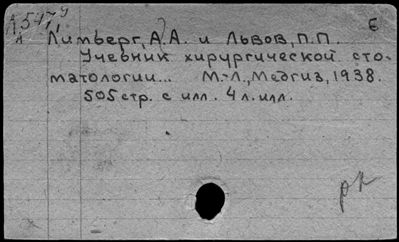 Б
Лимберг, А.А. и Львов, П.П.
Учебник хирургической сто-
матологии... М.-Л., Медгиз, 1938.
505 стр. с илл. 4 л. илл.